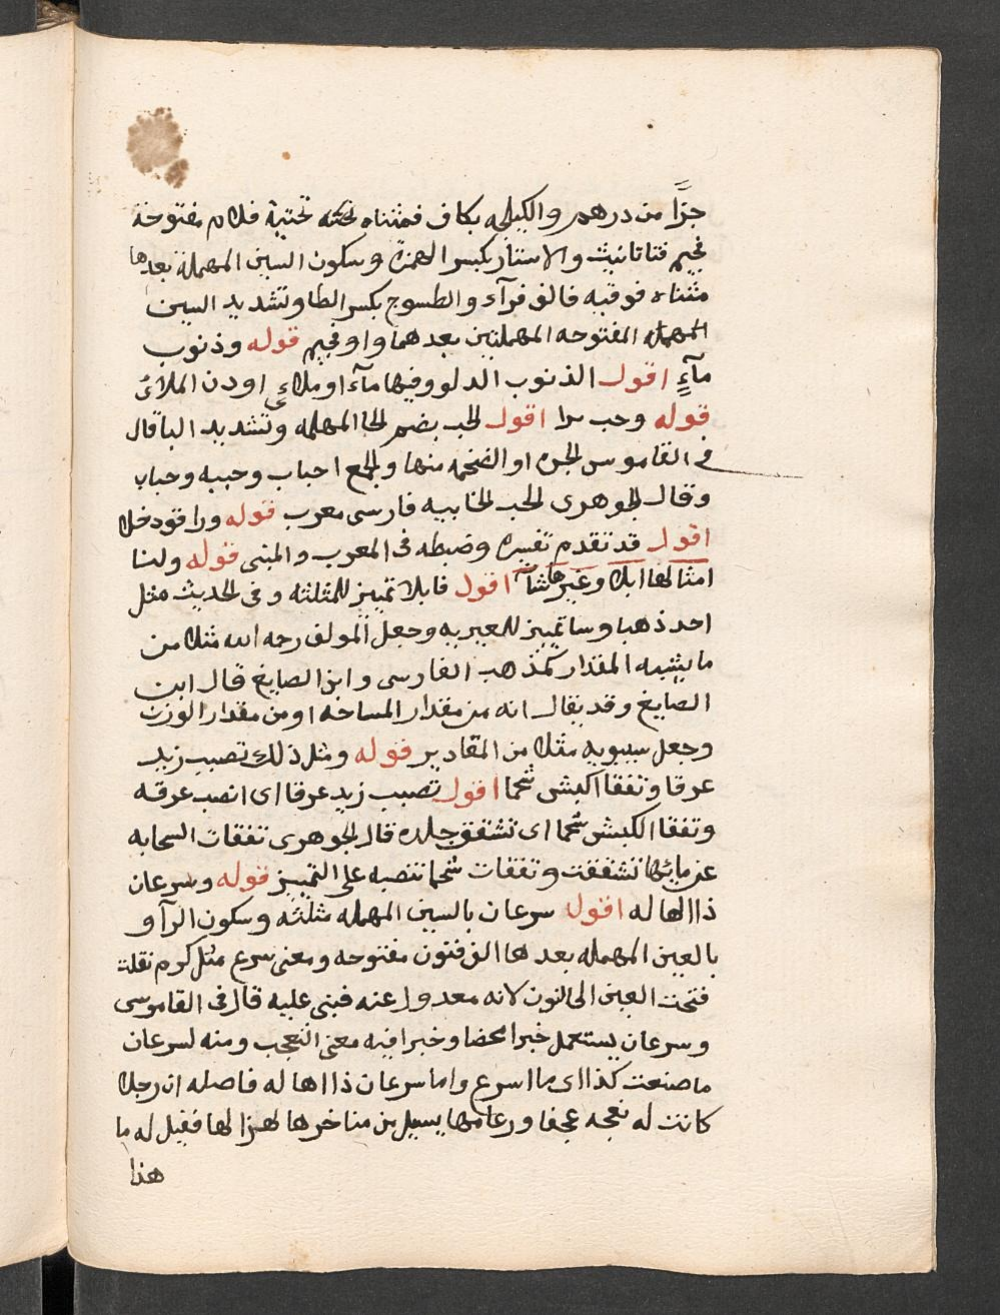 جزًّا من درهم والكيلجه بكاف فمثناه تحته تحتية فلام مفتوحة
فجيم فتا تانيث والاستار بكسر الهمزة وسكون السين المهملة بعدها
مثناه فوقيه فالف فرآء والطسوج بكسر الطا وتشديد السين
المهمله المفتوحه المهملتين بعدهما واو فجيم قوله وذنوب
مآءٍ اقول الذنوب الدلو وفيها مآء او ملاءٍي او دن الملاءُ
قوله وحب برا اقول الحب بضم الحا المهمله وتشديد البا قال
فى القاموس الجره او الضخمه منها والجمع احباب وحببه وحباب
وقال الجوهرى الحب الخابيه فارسى معرب قوله وراقود خلا
اقول قد تقدم تفسيره وضبطه فى المعرب والمبنى قوله ولنا
امثالها ابلا وغيرها شآء اقول فابلا تمييز للمثلثه وفى الحديث مثل
احد ذهبا وسا تمييز للغيريه وجعل المولف رحمه الله مثلا من
ما يشبه المقدار كمذهب الفارسى وابن الصايغ قال ابن
الصايغ وقد يقال انه من مقدار المساحه او من مقدار الوزن
وجعل سيبويه مثلا من المقادير قوله ومثل ذلك تصبب زيد
عرقا وتفقا الكبش شحما اقول تصبب زيد عرقا اى انصب عرقه
وتفقا الكبش شحما اى تشقق جلده قال الجوهرى تفقات السحابه
عن مائها تشققت وتفقات شحما تنصبه على التمييز قوله وسرعان
ذا الها له اقول سرعان بالسين المهمله مثلثه وسكون الرآ و
بالعين المهمله بعدها الف فنون مفتوحه ومعنى سرع مثل كرم نقلت
فتحت العين الى النون لانه معدول عنه فبنى عليه قال فى القاموس
وسرعان يستعمل خبرا محضا وخبرا فيه معنى التعجب ومنه لسرعان
ما صنعت كذا اى ما اسرع واما سرعان ذا اها له فاصله ان رجلا
كانت له نعجه عجفا ورعامها يسيل من مناخرها لهزالها فقيل له ما
هذا